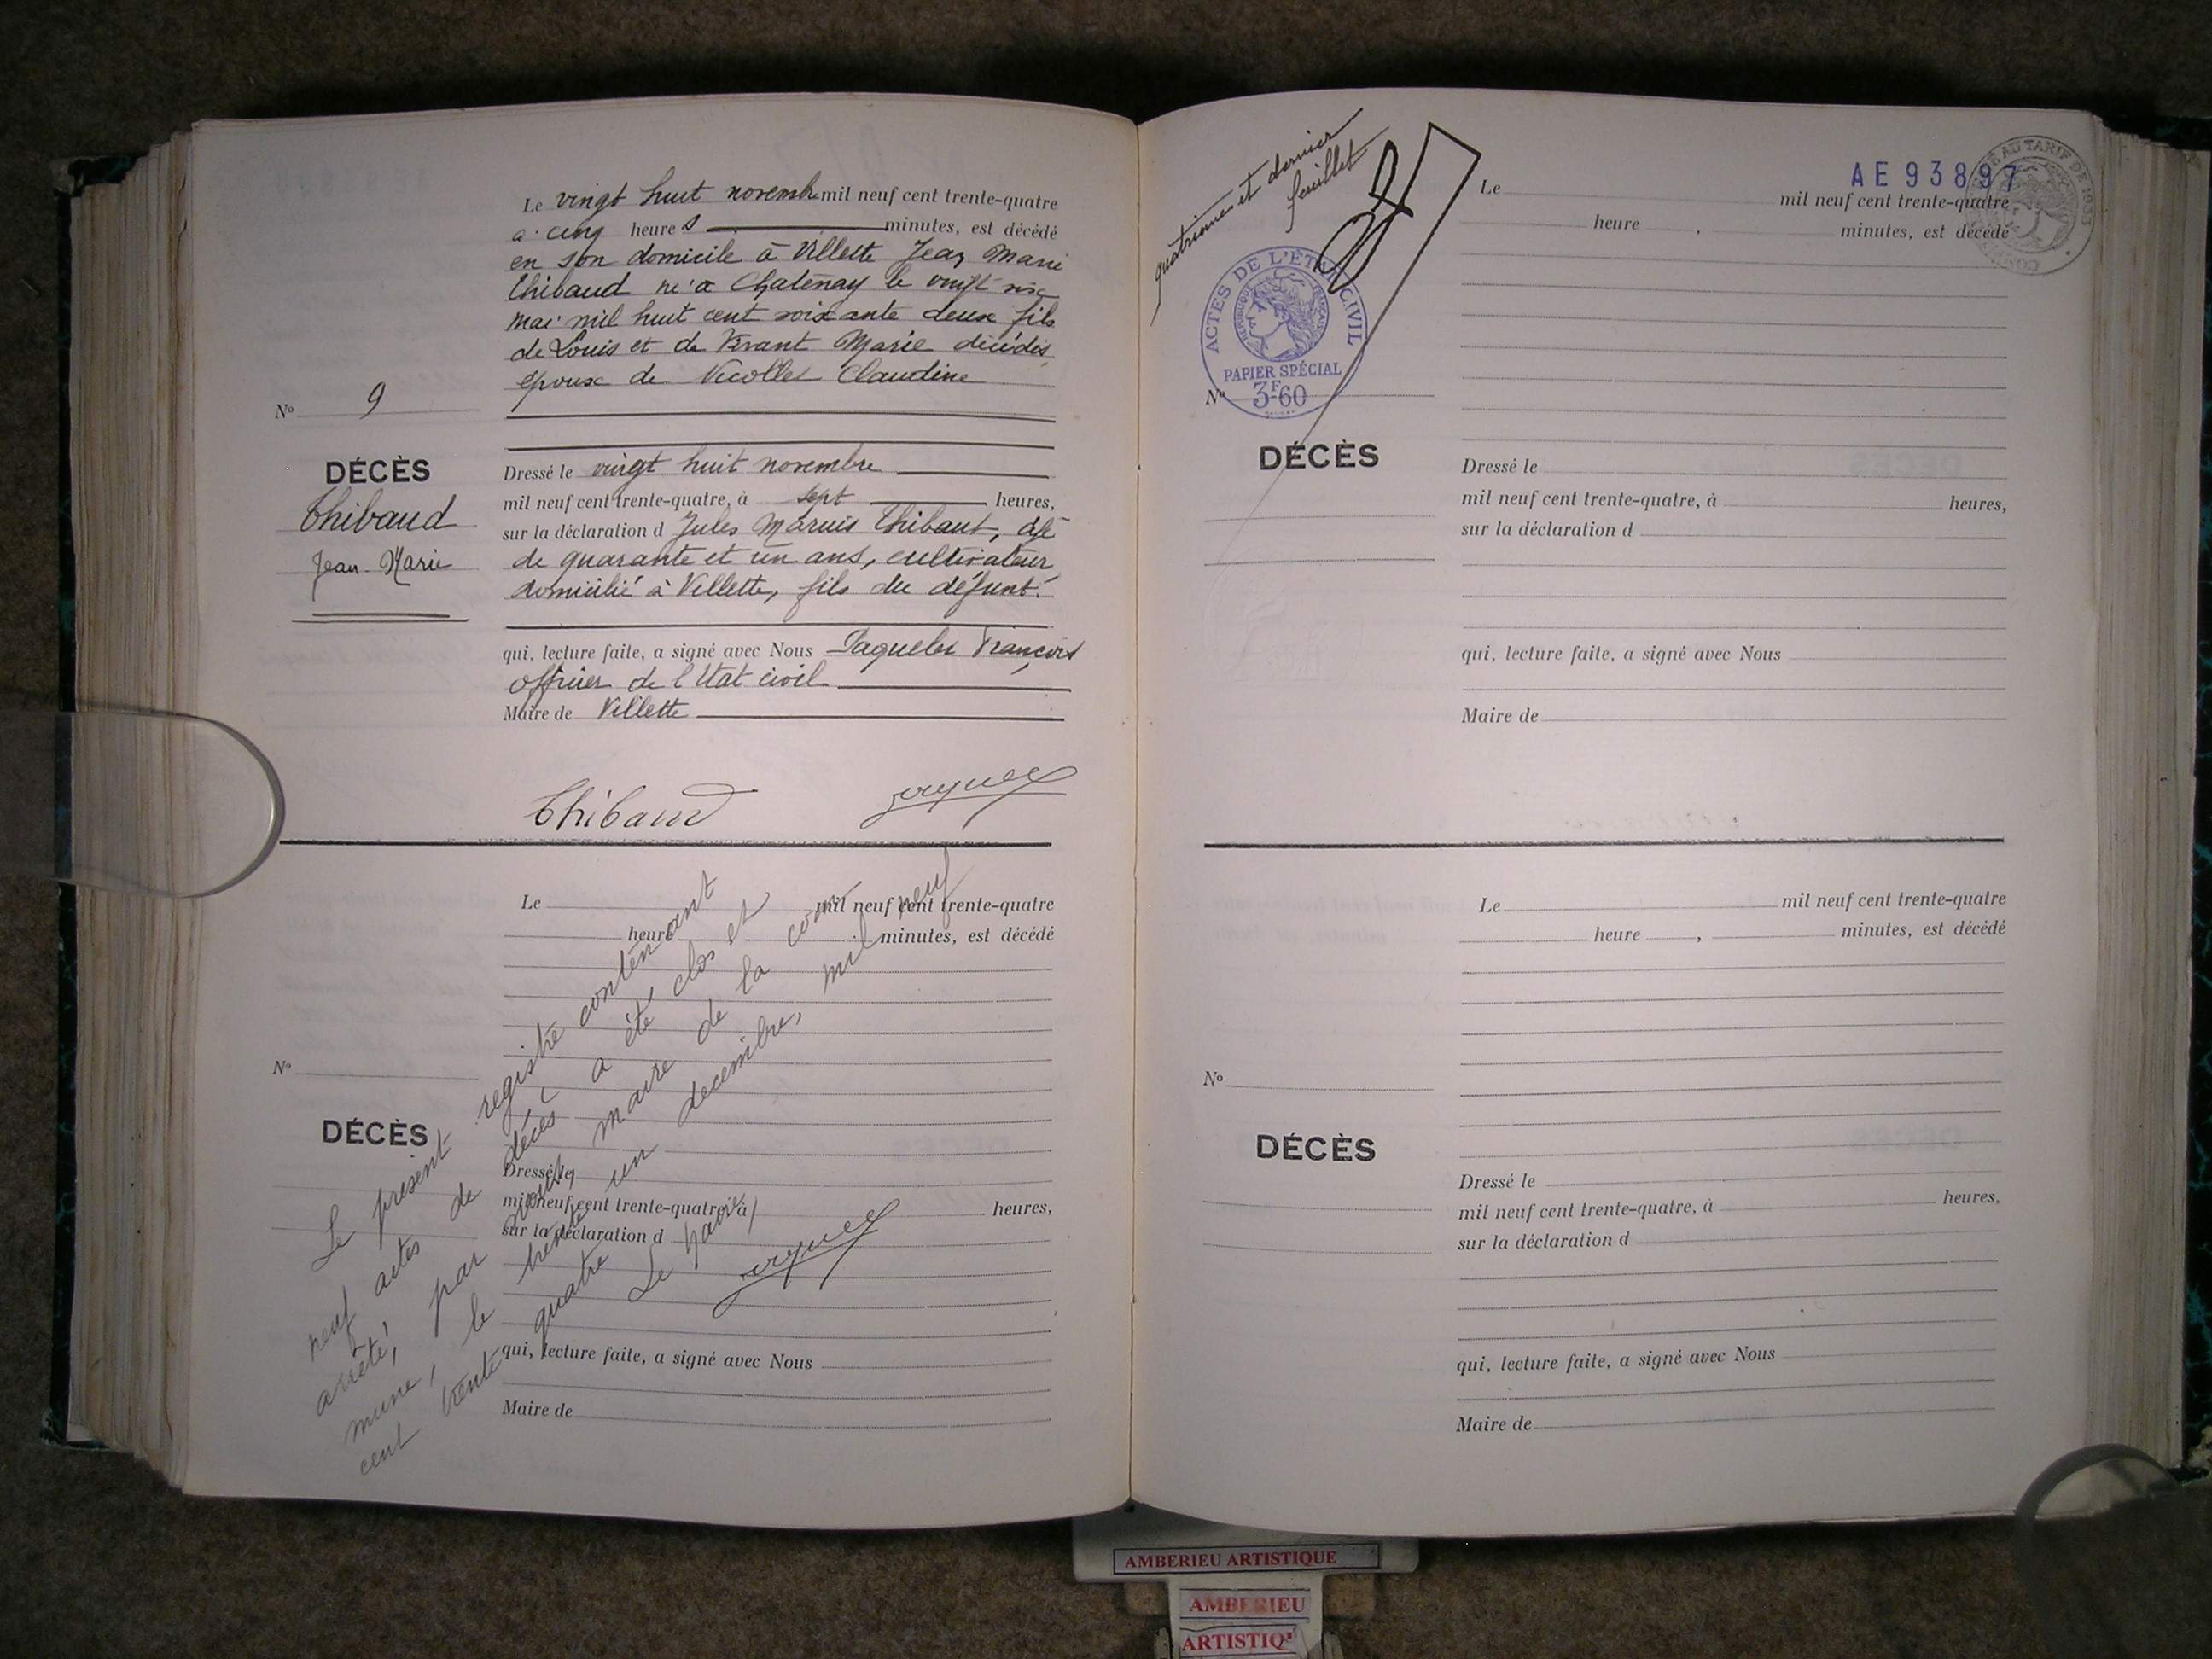 Le vingt huit novembre mil neuf cent trente-quatre
à cinq heures minutes, est décédé
en son domicile à Villette Jean Marie
Thibaud né à Chatenay le vingt six
mai mil huit cent soixante deux fils
de Louis et de Marie décédés
époux de Claudine
No 9
DÉCÈS
Thibaud
Jean Marie
Dressé le vingt huit novembre
mil neuf cent trente-quatre, à sept heures,
sur la déclaration d Jules Marius Thibaut, âgé
de quarante et un ans, cultivateur
domicilié à Villette, fils du défunt.
qui, lecture faite, a signé avec Nous François
officier de l'Etat civil
Maire de Villette
Thibaud
Le mil neuf cent trente-quatre
heure minutes, est décédé
No
DÉCÈS
Dressé le
mil neuf cent trente-quatre, à heures,
sur la déclaration d
qui, lecture faite, a signé avec Nous
Maire de
Le présent registre contenant
neuf actes de décès a été clos et
arrêté, par nous, maire de la com
mune, le trente un decembre, mil neuf
cent trente quatre
Le Maire
quatrième et dernier
feuillet
ACTES DE L'ÉTAT CIVIL
RÉPUBLIQUE FRANÇAISE
PAPIER SPÉCIAL
3F60
AE 93897
Le mil neuf cent trente-quatre
heure , minutes, est décédé
No
DÉCÈS
Dressé le
mil neuf cent trente-quatre, à heures,
sur la déclaration d
qui, lecture faite, a signé avec Nous
Maire de
Le mil neuf cent trente-quatre
heure , minutes, est décédé
No
DÉCÈS
Dressé le
mil neuf cent trente-quatre, à heures,
sur la déclaration d
qui, lecture faite, a signé avec Nous
Maire de
AMBERIEU ARTISTIQUE
AMBERIEU
ARTISTIQ